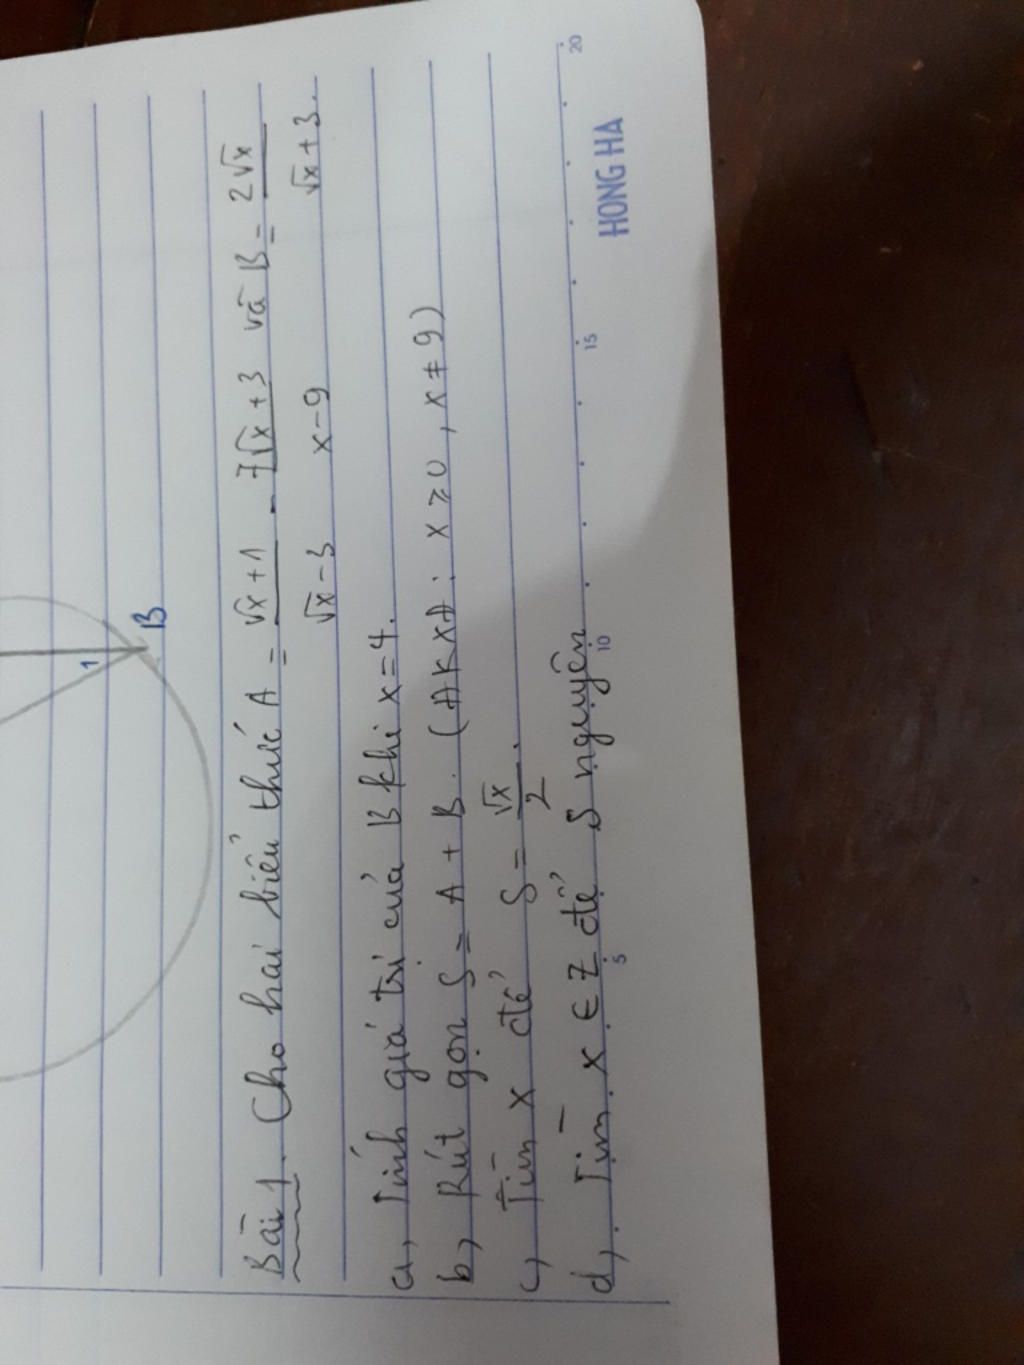 1 B
Bài 1. Cho hai biểu thức A = (√x + 1)/(√x - 3) - (7√x + 3)/(x - 9) và B = 2√x/(√x + 3).
a, Tính giá trị của B khi x = 4.
b, Rút gọn S = A + B. (ĐKXĐ: x ≥ 0, x ≠ 9)
c, Tìm x để S = √x/2.
d, Tìm x ∈ Z để S nguyên
5 10 15 20
HONG HA